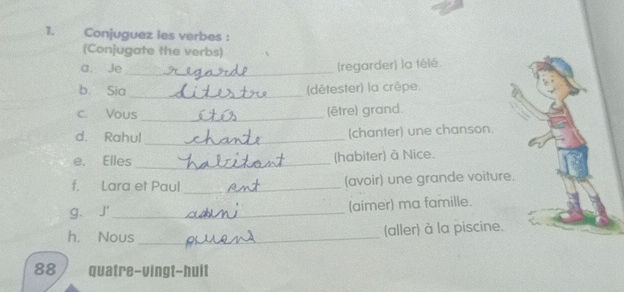 1. Conjuguez les verbes :
(Conjugate the verbs)
a. Je regarde (regarder) la télé.
b. Sia (détester) la crêpe.
c. Vous êtes (être) grand.
d. Rahul chante (chanter) une chanson.
e. Elles habitent (habiter) à Nice.
f. Lara et Paul ont (avoir) une grande voiture.
g. J' (aimer) ma famille.
h. Nous (aller) à la piscine.
88 quatre-vingt-huit